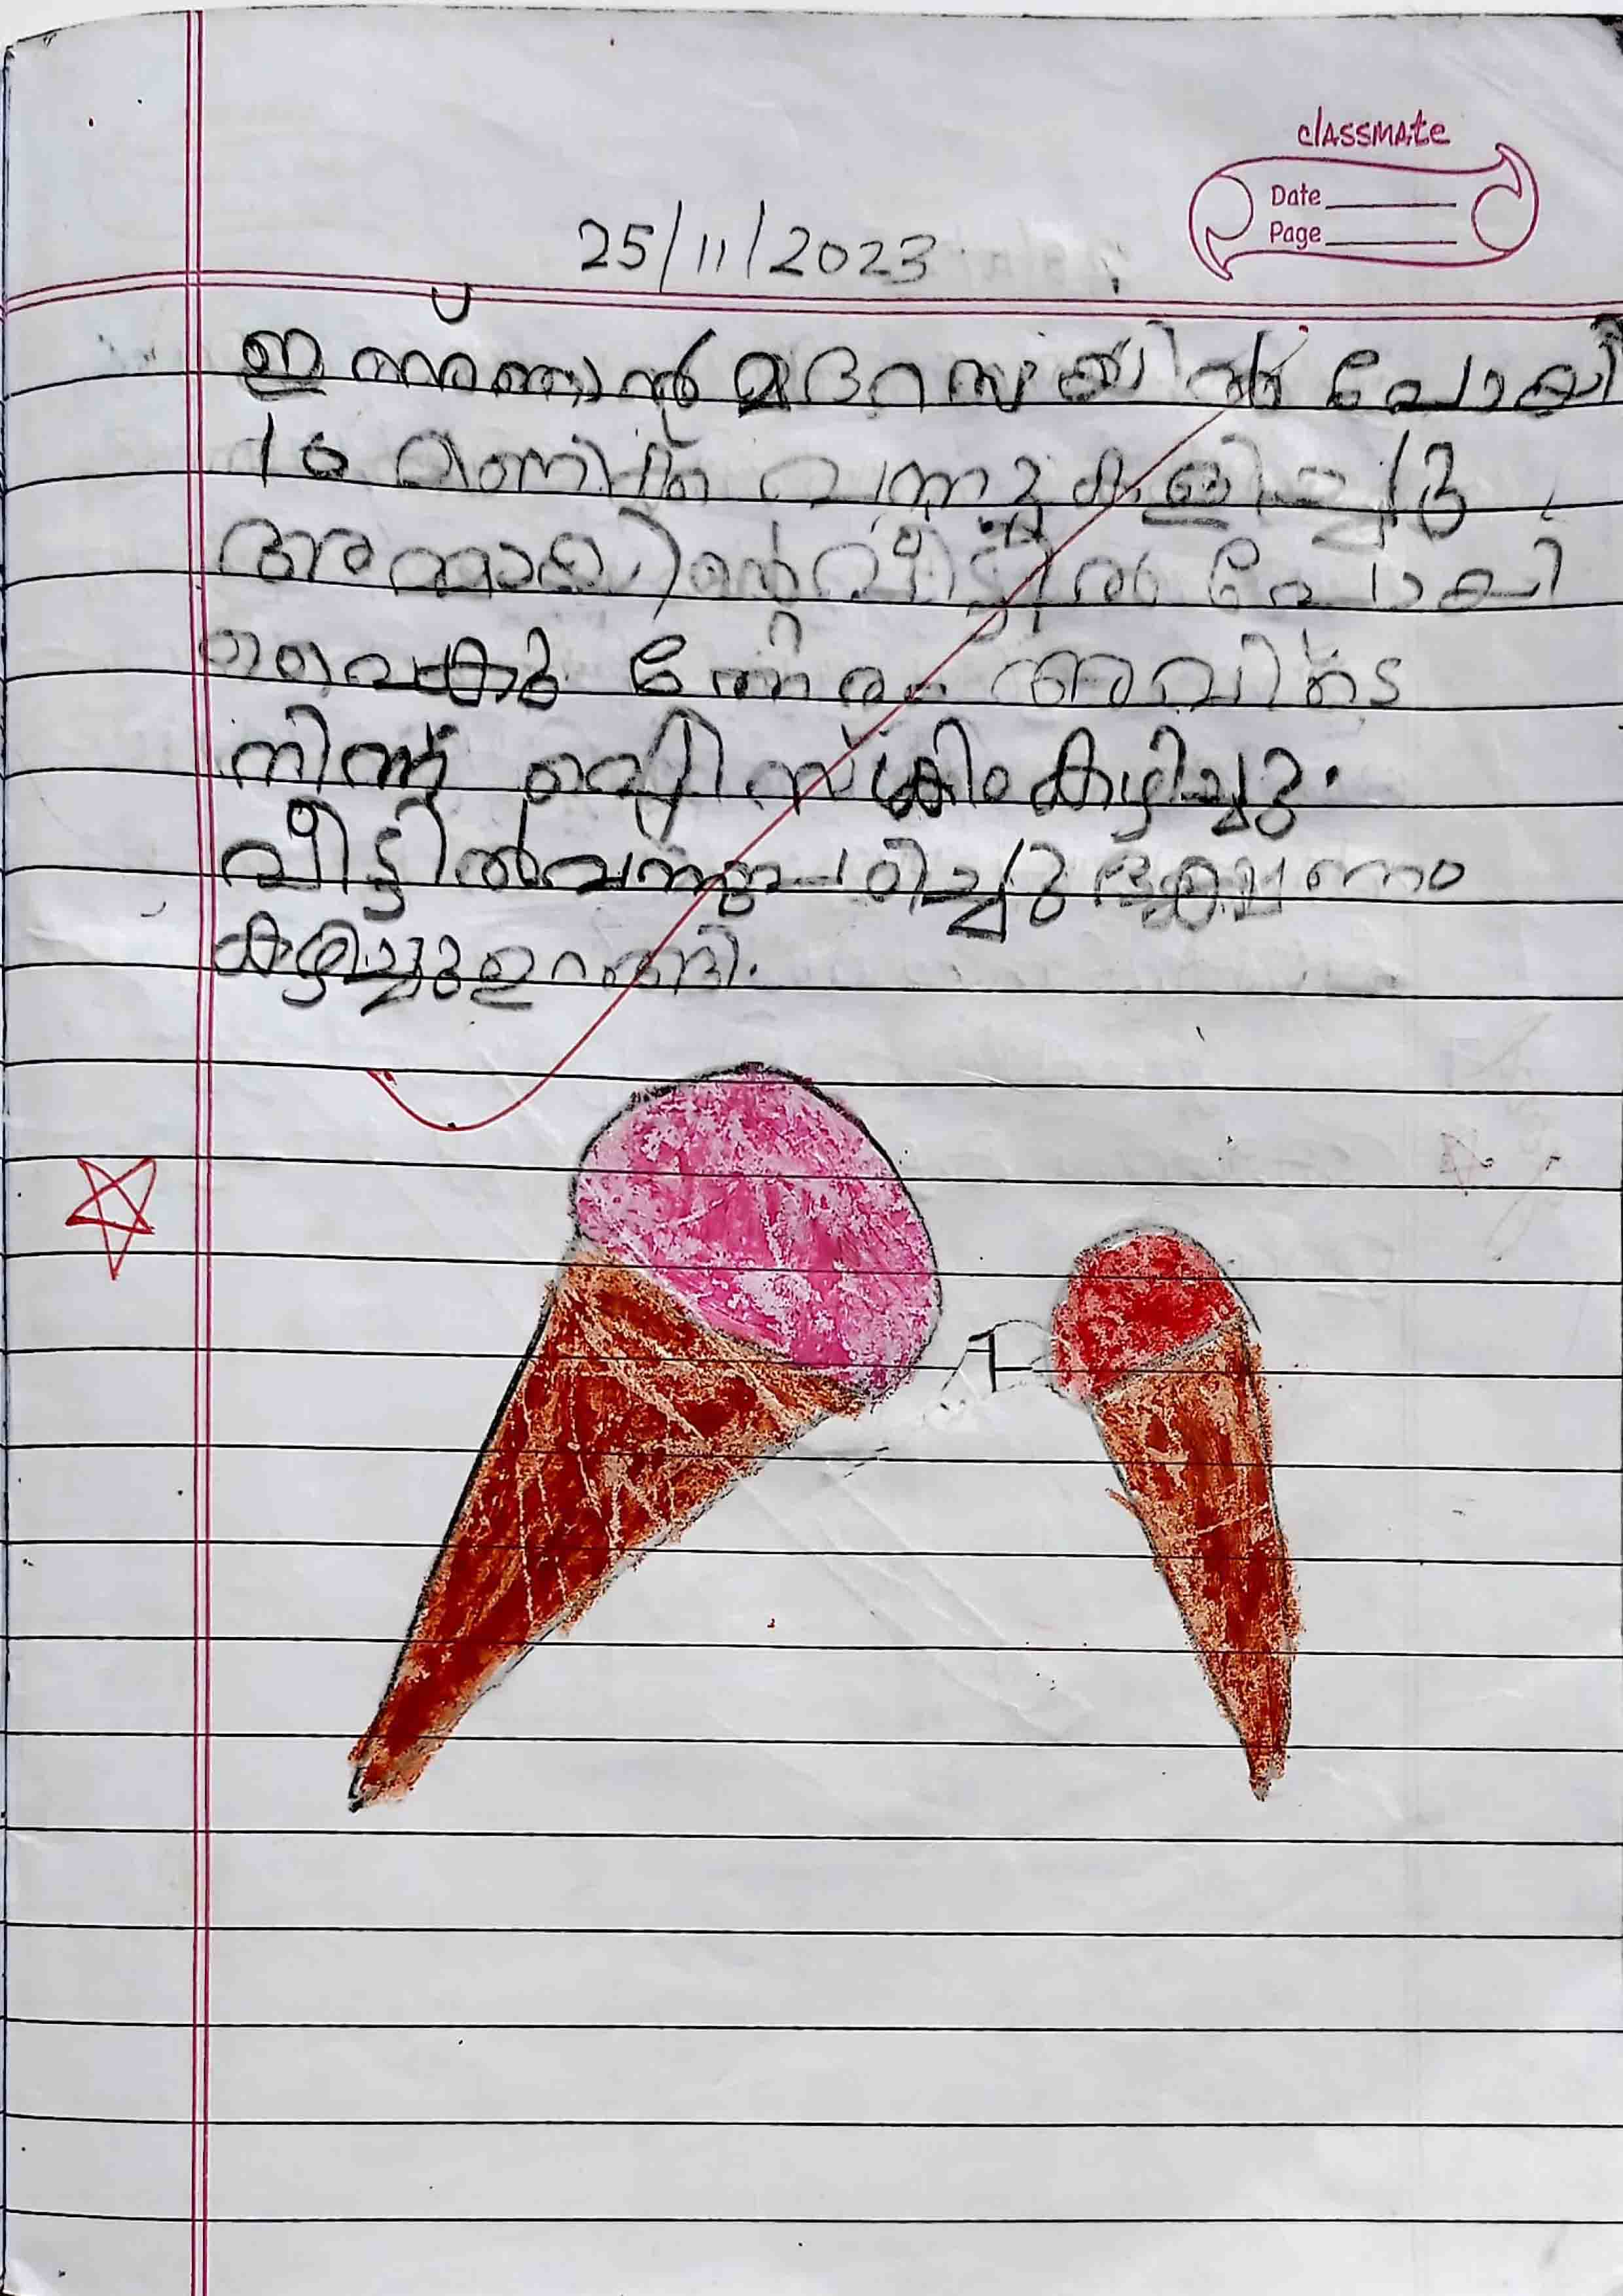 classmate
Date
Page
25/11/2023
ഇന്ന് ഞാൻ മദ്റസയിൽ പോയി
10 മണിക്ക് വന്നു കളിച്ചു
വീട്ടിൽ പോയി
വൈകു ന്നേരം അവിടെ
നിന്ന് ഐസ്ക്രീം കഴിച്ചു.
വീട്ടിൽ വന്നു പഠിച്ചു ഭക്ഷണം
കഴിച്ചു ഉറങ്ങി.